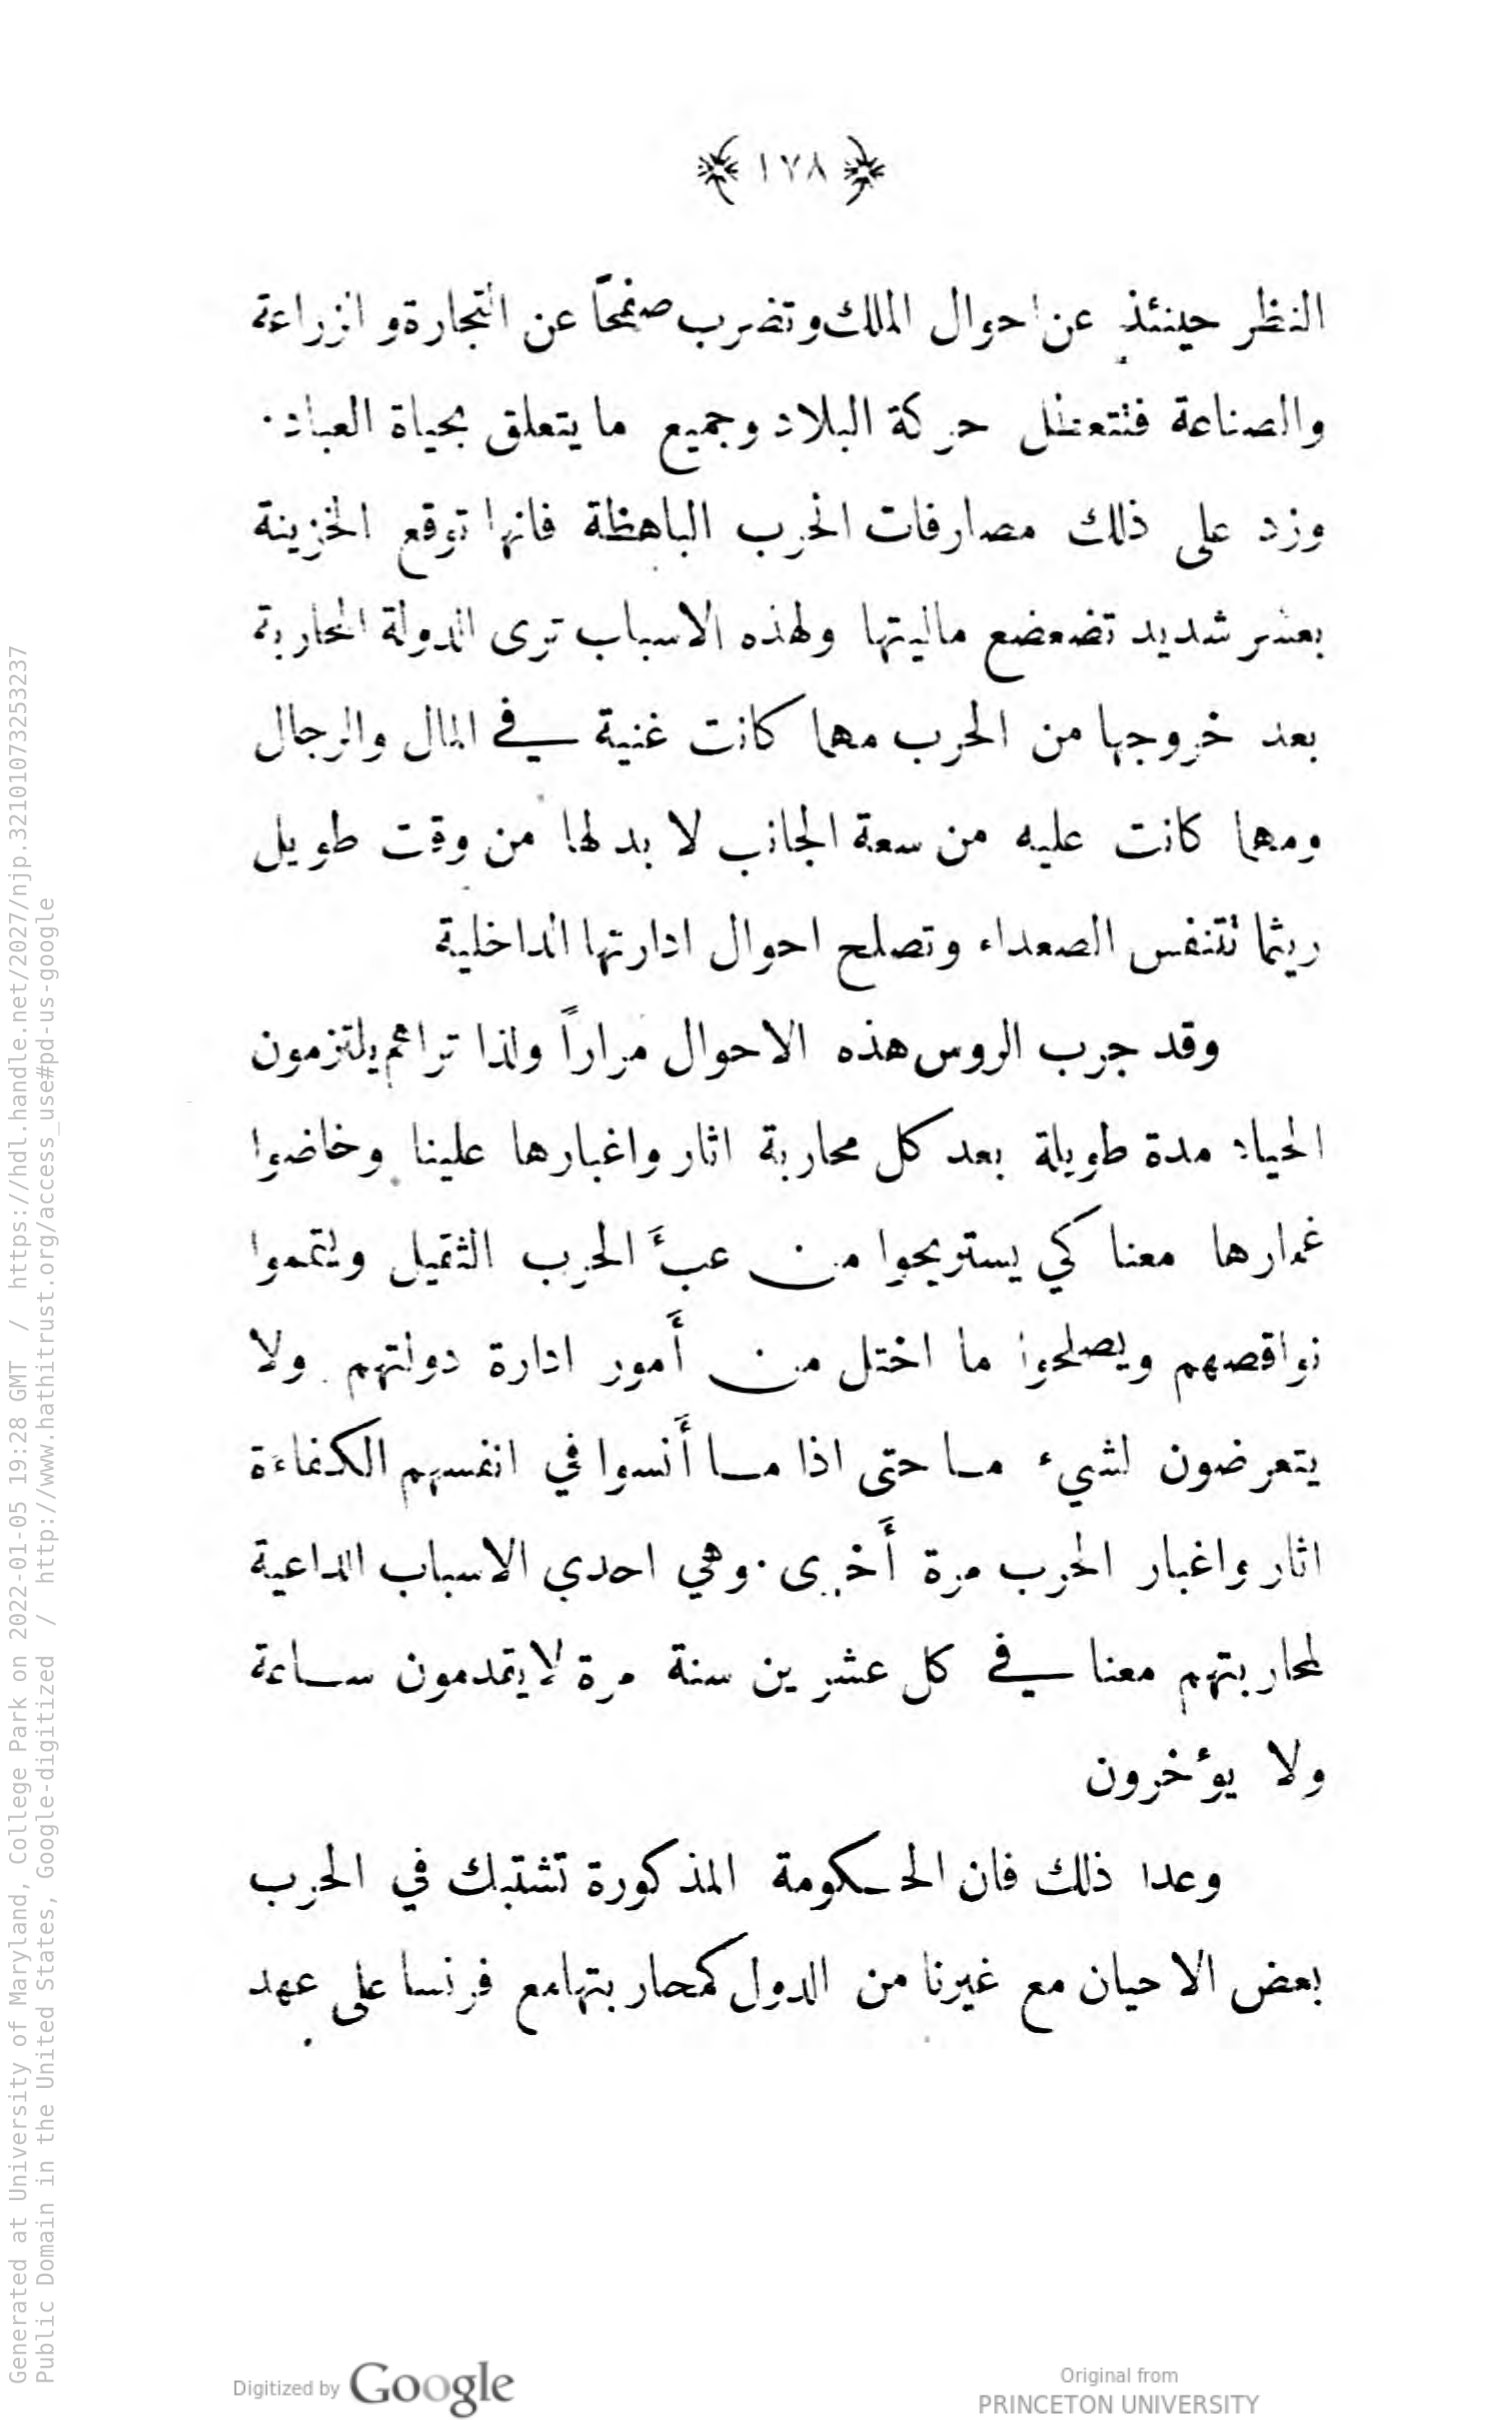 ١٧٨
النظر حينئذٍ عن احوال الملك وتضرب صفحاً عن التجارة والزراعة
والصناعة فتتعطل حركة البلاد وجميع ما يتعلق بحياة العباد.
وزد على ذلك مصارفات الحرب الباهظة فانها توقع الخزينة
بعسر شديد تضعضع ماليتها ولهذه الاسباب ترى الدولة المحاربة
بعد خروجها من الحرب مهما كانت غنية في المال والرجال
ومهما كانت عليه من سعة الجانب لا بد لها من وقت طويل
ريثما تتنفس الصعداء وتصلح احوال ادارتها الداخلية
وقد جرب الروس هذه الاحوال مراراً ولذا تراهم يلتزمون
الحياد مدة طويلة بعد كل محاربة اثار واغبارها علينا وخاضوا
غمارها معنا كي يستريحوا من عبءَ الحرب الثقيل وليتمموا
نواقصهم ويصلحوا ما اختل من أَمور ادارة دولتهم ولا
يتعرضون لشيء ما حتى اذا ما أَنسوا في انفسهم الكفاءة
اثار واغبار الحرب مرة أَخرى. وهي احدي الاسباب الداعية
لمحاربتهم معنا في كل عشرين سنة مرة لا يتقدمون ساعة
ولا يوءخرون
وعدا ذلك فان الحكومة المذكورة تشتبك في الحرب
بعض الاحيان مع غيرنا من الدول كمحاربتها مع فرنسا على عهد
Generated at University of Maryland, College Park on 2022-01-05 19:28 GMT / https://hdl.handle.net/2027/njp.32101073253237
Public Domain in the United States, Google-digitized / http://www.hathitrust.org/access_use#pd-us-google
Digitized by Google
Original from
PRINCETON UNIVERSITY